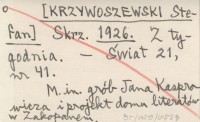 [KRZYWOSZEWSKI Ste-
fan] Skrz. 1926. Z ty-
godnia. – Świat 21,
nr 41.
M. in. grób Jana Kaspro-
wicza i projekt domu literatów
w Zakopanem.